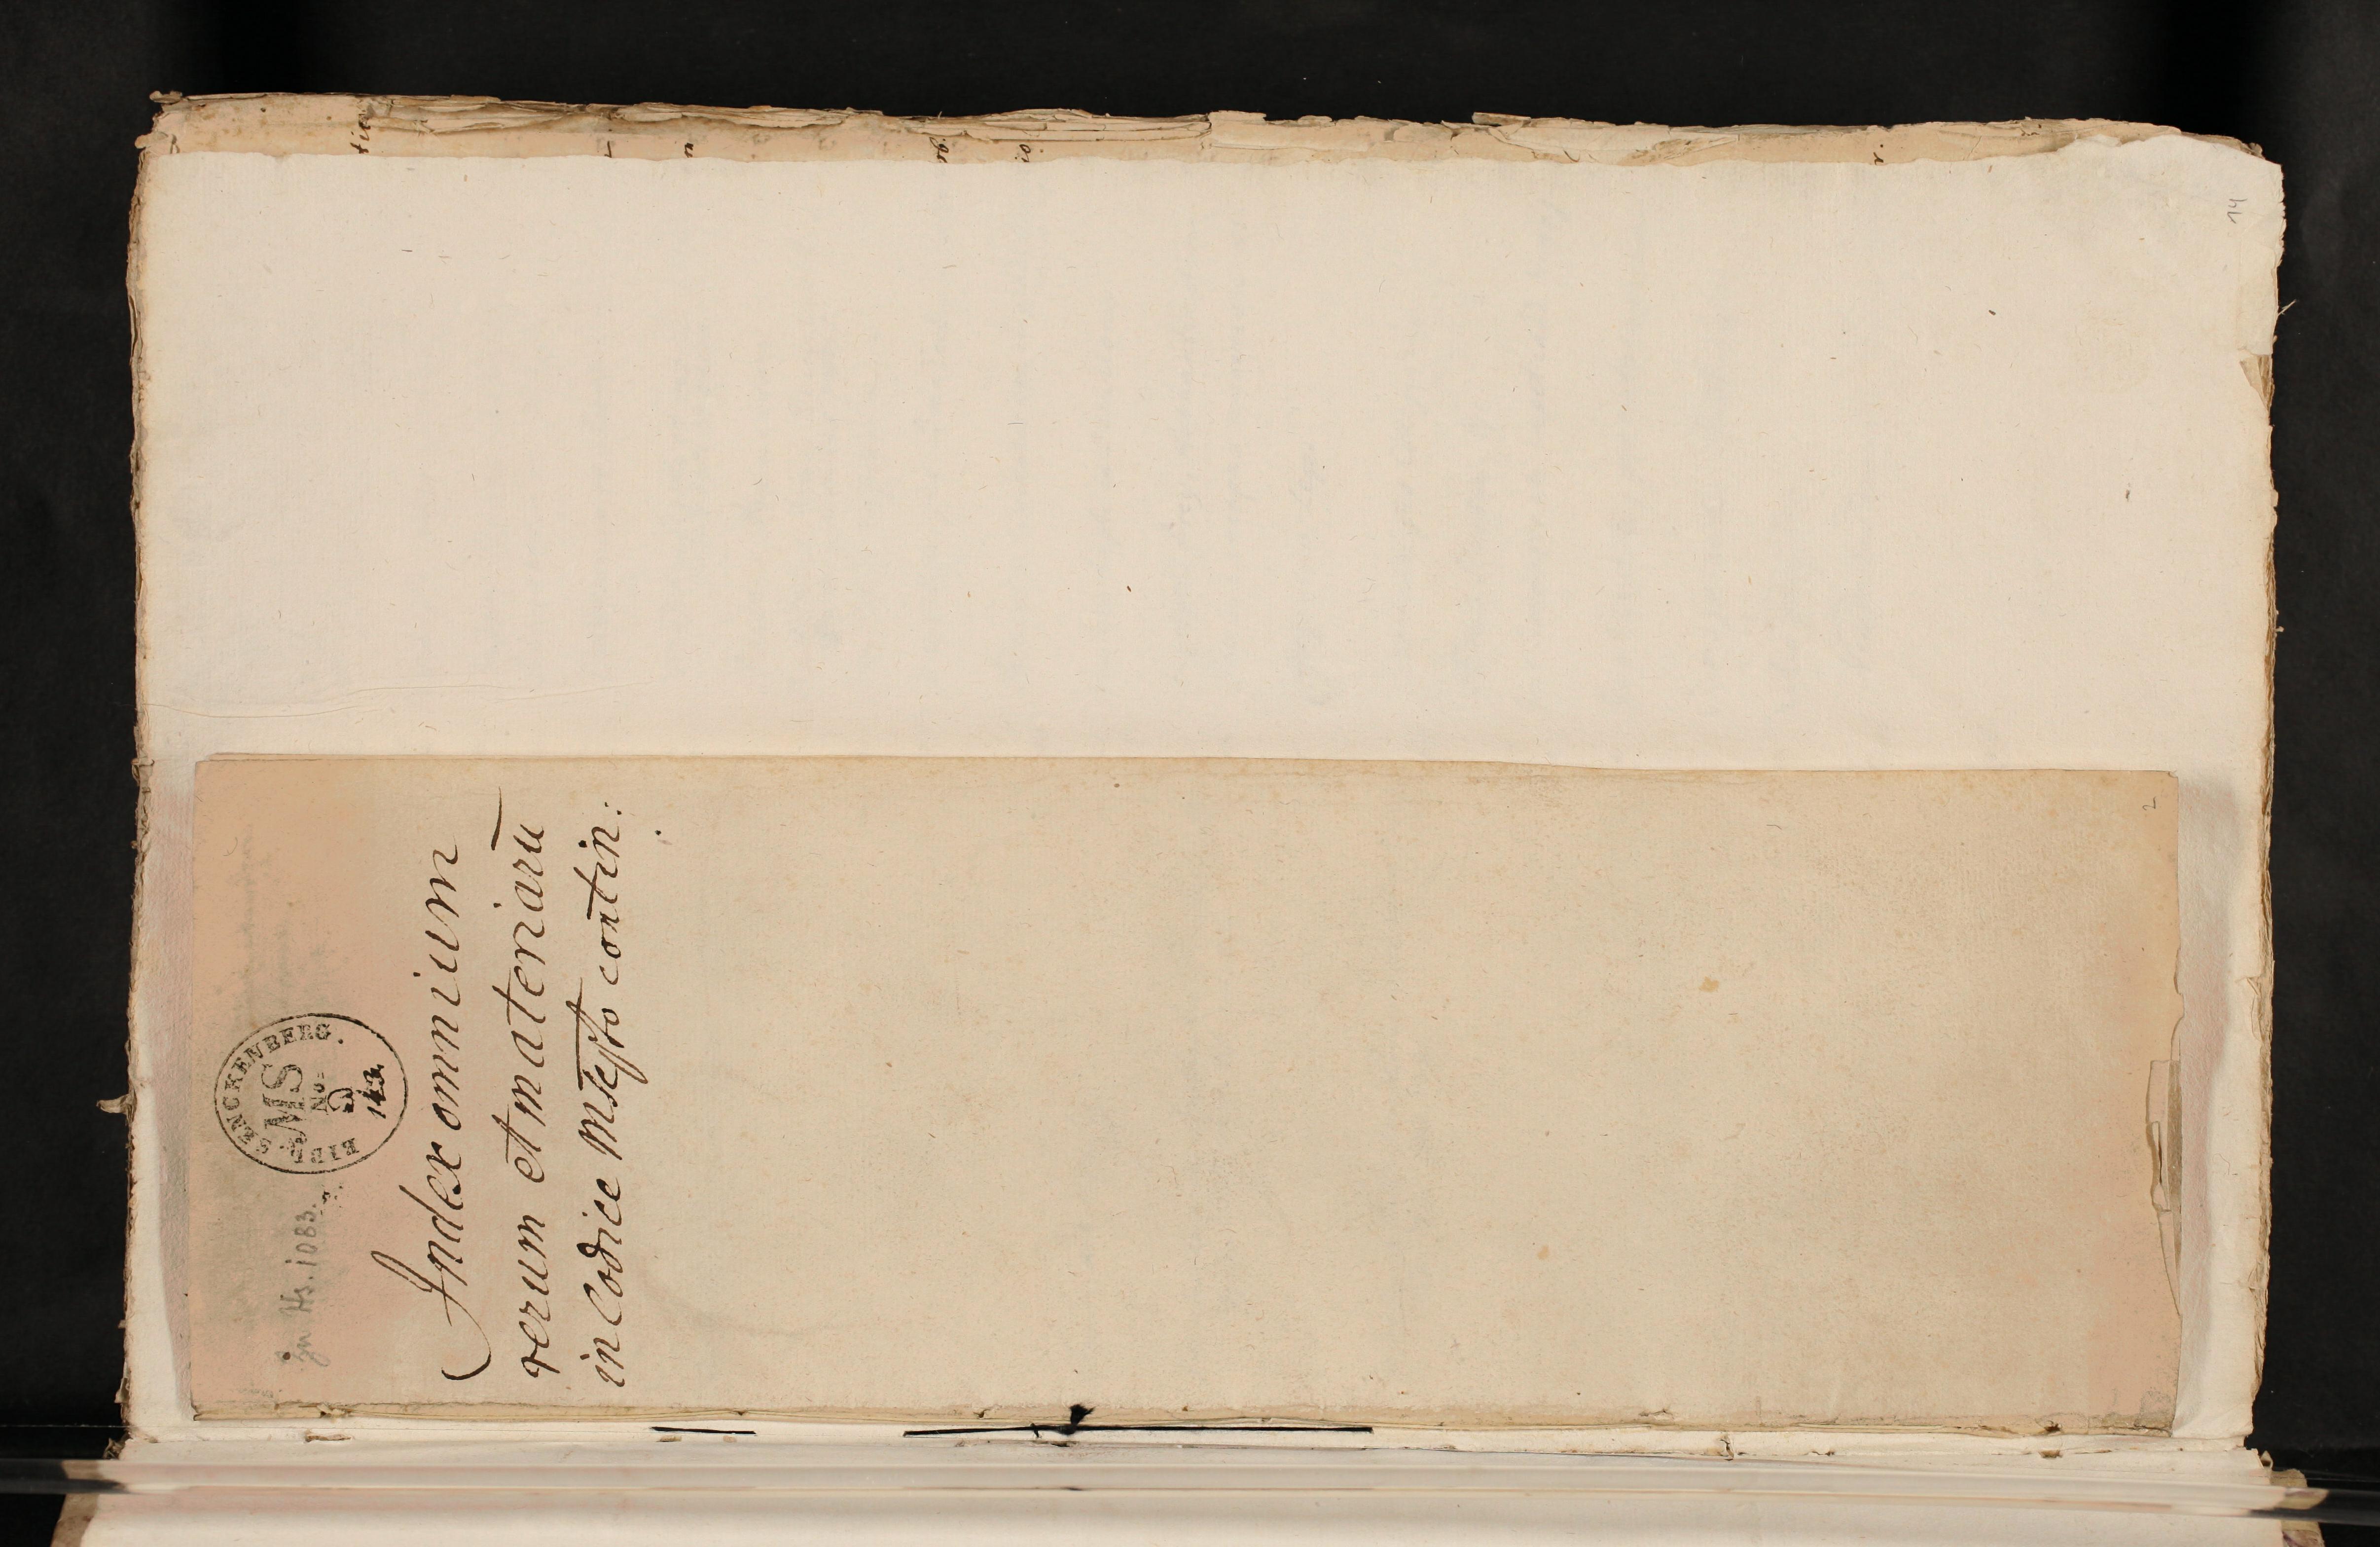 zu Hs. 1083.
BIBL. SENCKENBERG.
MS
No.
2
143.
Index omnium
rerum et materiarū
in Codice mscpto contin:
2
14